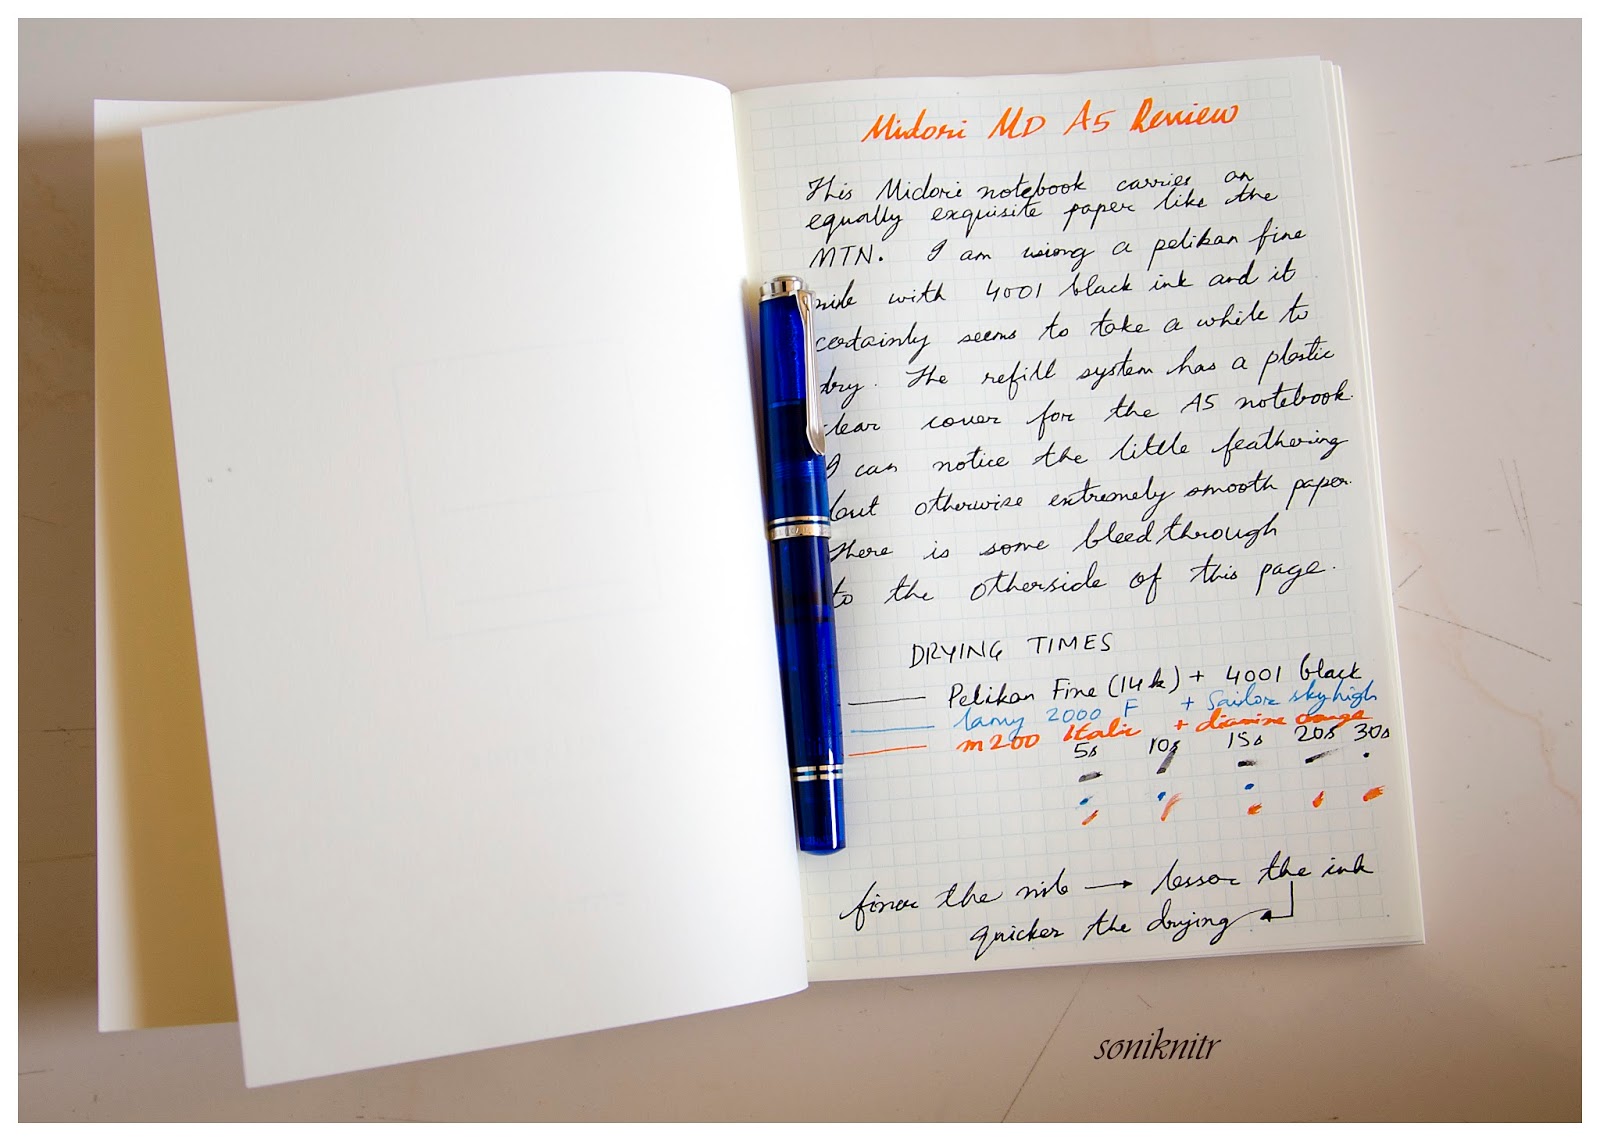 Midori MD A5 Review
This Midori notebook carries an
equally exquisite paper like the
MTN. I am using a pelikan fine
nib with 4001 black ink and it
certainly seems to take a while to
dry. The refill system has a plastic
clear cover for the A5 notebook.
I can notice the little feathering
but otherwise extremely smooth paper.
There is some bleedthrough
to the otherside of this page.
DRYING TIMES
Pelikan Fine (14k) + 4001 black
lamy 2000 F + Sailor skyhigh
m200 Italic + diamine orange
5s 10s 15s 20s 30s
finer the nib → lessor the ink
quicker the drying
soniknitr